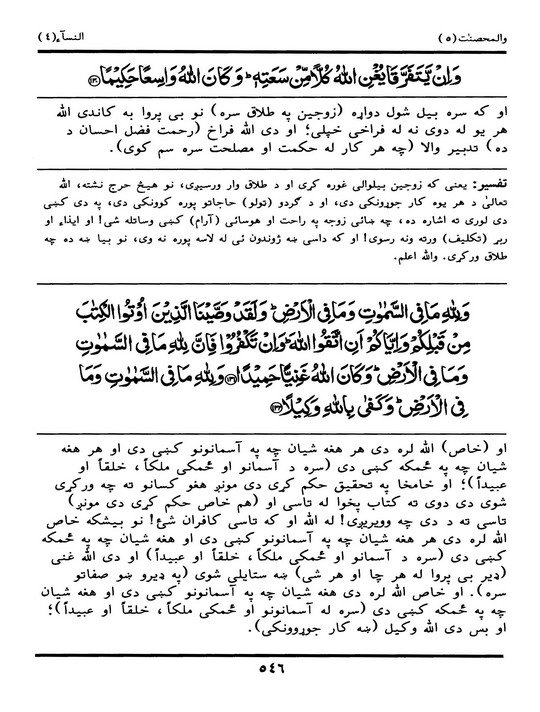 والمحصنٰت (٥)
النسآء (٤)
وَاِنْ يَّتَفَرَّقَا يُغْنِ اللّٰهُ كُلًّا مِّنْ سَعَتِهٖ ؕ وَكَانَ اللّٰهُ وَاسِعًا حَكِيْمًا ﴿١٣٠﴾
او که سره بيل شول دواړه (زوجين په طلاق سره) نو بې پروا به کاندى الله
هر يو له دوى نه له فراخۍ خپلى؛ او دى الله فراخ (رحمت فضل احسان د
ده) تدبير والا (چه هر کار له حکمت او مصلحت سره سم کوى).
تفسير: يعنى که زوجين بيلوالى غوره کړى او د طلاق وار ورسيږى، نو هيڅ حرج نشته، الله
تعالىٰ د هر يوه کار جوړونکى دى، او د ګردو (تولو) حاجاتو پوره کوونکى دى، په دى کښى
دى لورى ته اشاره ده، چه ښائى زوجه په راحت او هوسائى (آرام) کښى وساتله شى! او ايذاء او
ربړ (تکليف) ورته ونه رسوى! او که داسى ښه ژوندون ئى له لاسه پوره نه وى، نو بيا ښه ده چه
طلاق ورکړى. والله اعلم.
وَلِلّٰهِ مَا فِى السَّمٰوٰتِ وَمَا فِى الْاَرْضِ ؕ وَلَقَدْ وَصَّيْنَا الَّذِيْنَ اُوْتُوا الْكِتٰبَ
مِنْ قَبْلِكُمْ وَاِيَّاكُمْ اَنِ اتَّقُوا اللّٰهَ ؕ وَاِنْ تَكْفُرُوْا فَاِنَّ لِلّٰهِ مَا فِى السَّمٰوٰتِ
وَمَا فِى الْاَرْضِ ؕ وَكَانَ اللّٰهُ غَنِيًّا حَمِيْدًا ﴿١٣١﴾ وَلِلّٰهِ مَا فِى السَّمٰوٰتِ وَمَا
فِى الْاَرْضِ ؕ وَكَفٰى بِاللّٰهِ وَكِيْلًا ﴿١٣٢﴾
او (خاص) الله لره دى هر هغه شيان چه په آسمانونو کښى دى او هر هغه
شيان چه په ځمکه کښى دى (سره د آسمانو او ځمکى ملکاً، خلقاً او
عبيداً)؛ او خامخا په تحقيق حکم کړى دى مونږ هغو کسانو ته چه ورکړى
شوى دى دوى ته کتاب پخوا له تاسى او (هم خاص حکم کړى دى مونږ)
تاسى ته د دى چه وويريږئ! له الله او که تاسى کافران شئ! نو بيشکه خاص
الله لره دى هر هغه شيان چه په آسمانونو کښى دى او هغه شيان چه په ځمکه
کښى دى (سره د آسمانو او ځمکى ملکاً، خلقاً او عبيداً) او دى الله غنى
(ډير بې پروا له هر چا او هر شى) ښه ستايلى شوى (په ډيرو ښو صفاتو
سره). او خاص الله لره دى هغه شيان چه په آسمانونو کښى دى او هغه شيان
چه په ځمکه کښى دى (سره له آسمانونو او ځمکى ملکاً، خلقاً او عبيداً)؛
او بس دى الله وکيل (ښه کار جوړوونکى).
٥٤٦